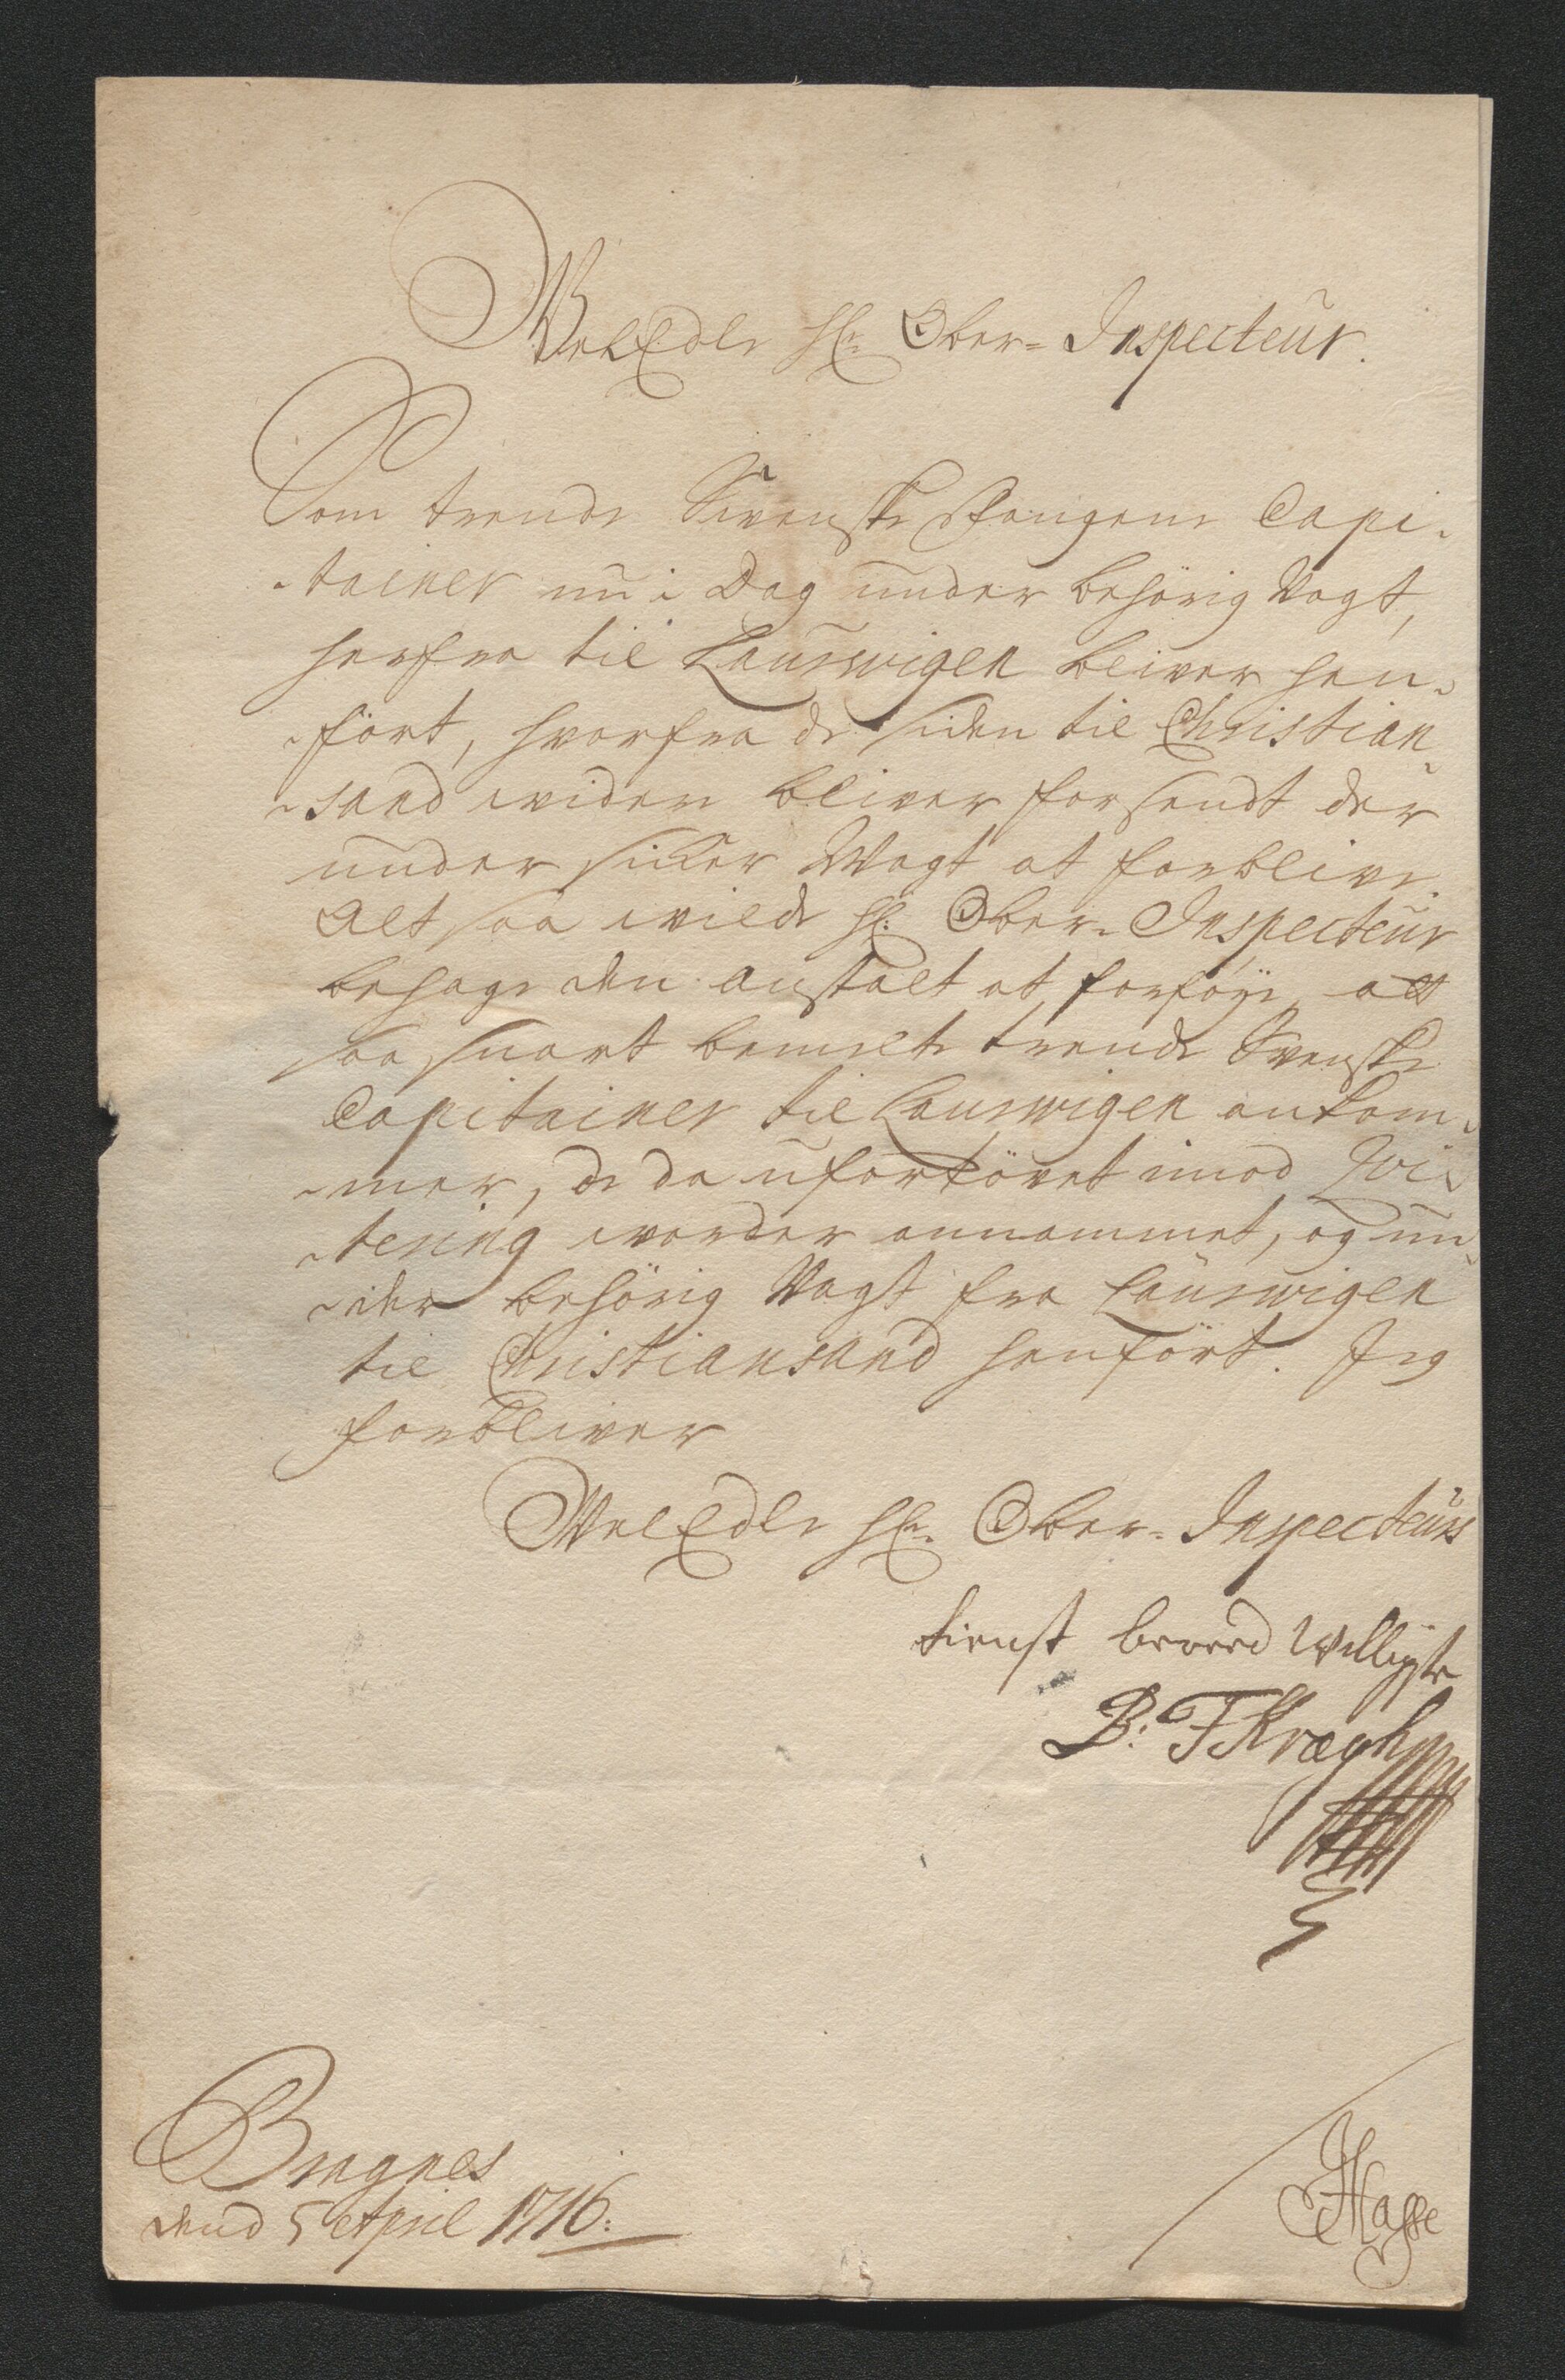 WelEdle Hr: Ober-Inspecteur.
Som trende Swenske Fangene Capi-
-tainer nu i Dag under behörig Vagt,
herfra til Laurwigen bliver hen-
-fört, hvorfra de siden til Christian-
-sand widere bliver forsendt der
under sicker Wagt at forblive.
Alt saa wilde Hr: Ober-Inspecteur
behage den anstalt at forföye, at
saa snart bemelte trende Svenske
Capitainer til Laurwigen ankom-
-mer, de da ufortövet imod Qvi-
-tering worder annammet, og un-
-der behörig Vagt fra Laurwigen
til Christiansand henfört. Jeg
forbliver
WelEdle Hr: Ober-Inspecteurs
tienst bereed Willigste
B: F Kræyh
Bragnes
dend 5 April 1716: